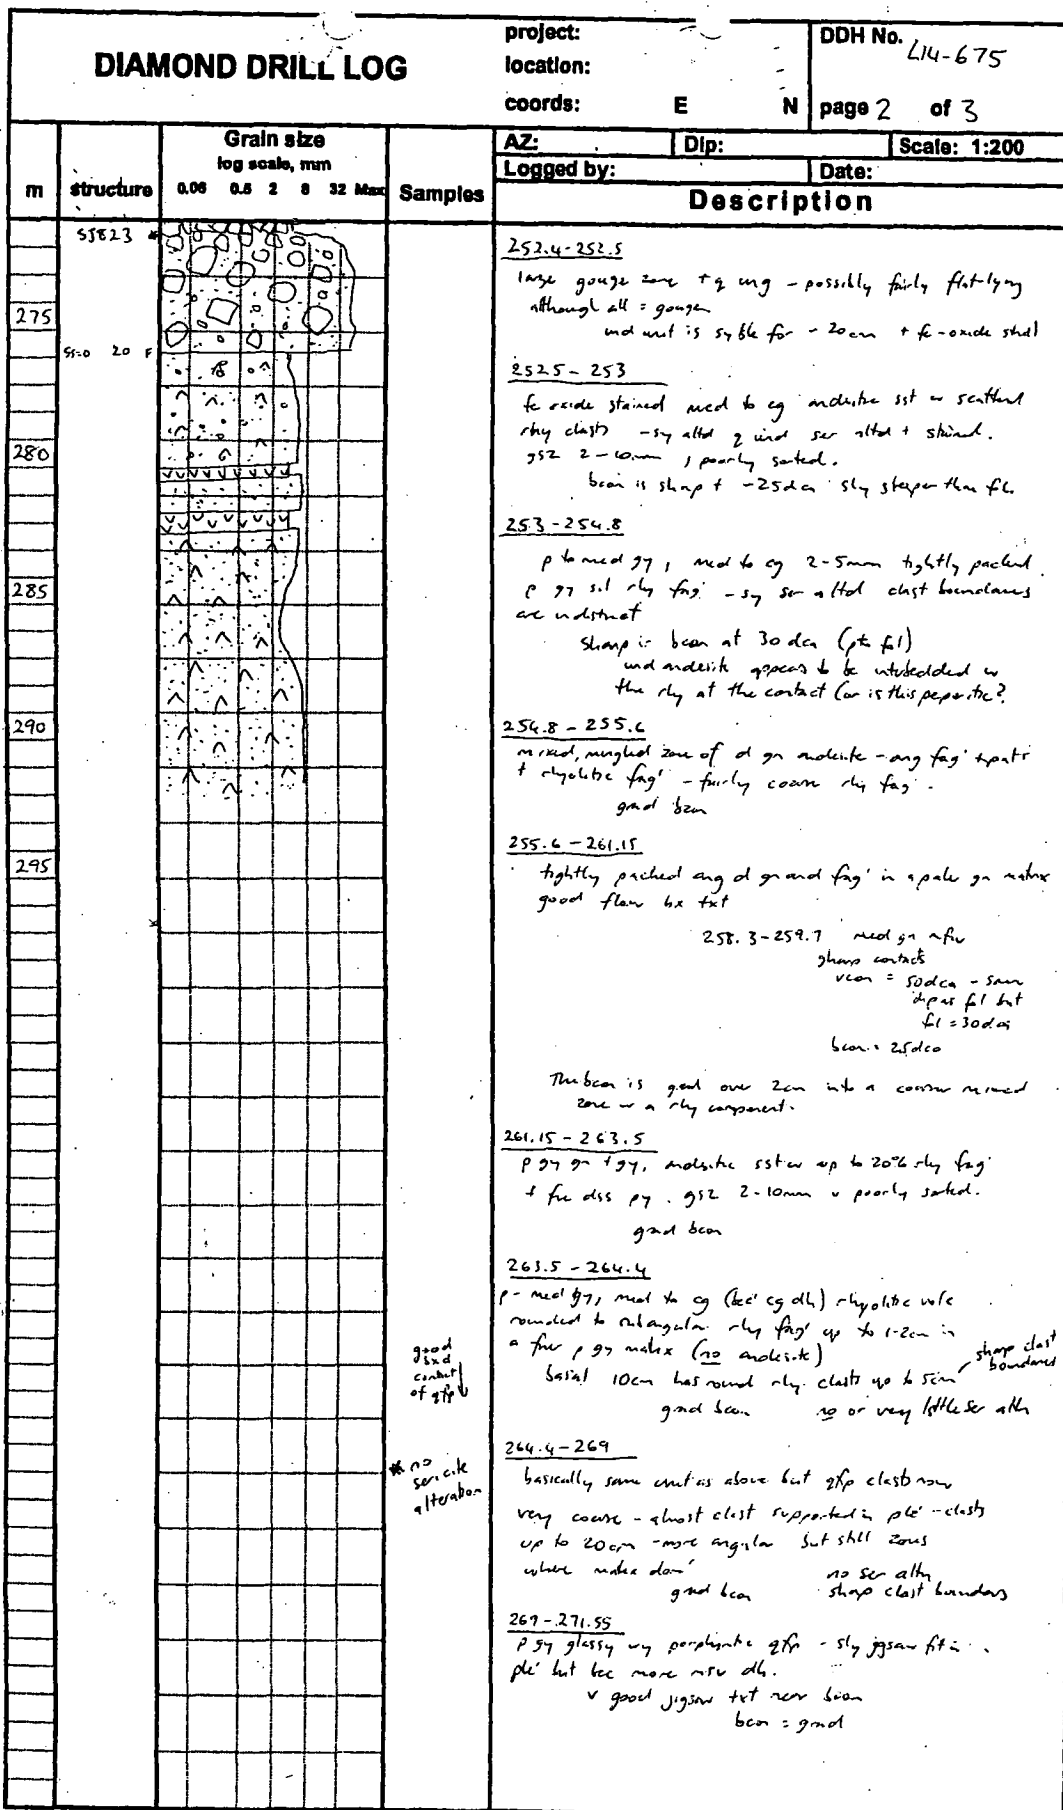 DIAMOND DRILL LOG
project:
location:
coords: E N
DDH No. L14-675
page 2 of 3
AZ: Dip: Scale: 1:200
Logged by: Date:
m structure Grain size
log scale, mm
0.06 0.5 2 8 32 Max
Samples
Description
SJ823 *
275
20 F
280
285
290
295
good
contact
of qfp ↓
* no
sericite
alteration
252.4-252.5
large gouge zone + q - possibly fairly flat-lying
although all = gouge
und unit is for ~ 20cm + fe-oxide
252.5 - 253
fe oxide stained med to cg andesitic sst w scattered
rhy clasts - sy altd ser altd + stained.
gsz 2-10mm, poorly sorted.
bcon is sharp + ~25dca sly steeper than
253 - 254.8
p to med gy, med to cg 2-5mm tightly packed
p gy sil rhy frag' - sy ser altd clast boundaries
are indistinct
sharp bcon at 30 dca
und andesite appears to be interbedded w
the rhy at the contact (or is this peperitic?
254.8 - 255.6
mixed, mingled zone of d gn andesite - ang frag'
+ rhyolitic frag' - fairly coarse rhy frag'.
grad bcon
255.6 - 261.15
tightly packed ang d gn and frag' in a pale gn matrix
good flow bx txt
258.3-259.7 med gn
sharp contacts
= 50dca
fol but
fol = 30dca
bcon = 25dca
The bcon is grad over 2cm into a coarser mixed
zone w a rhy component.
261.15 - 263.5
p gy gn + gy, andesitic sst w up to 20% rhy frag'
+ fn dss py. gsz 2-10mm v poorly sorted.
grad bcon
263.5 - 264.4
p - med gy, med to cg (bec' cg dh) rhyolitic
rounded to subangular rhy frag' up to 1-2cm in
a finer p gy matrix (no andesite)
basal 10cm has round rhy clasts up to 5cm sharp clast
boundaries
grad bcon no or very little ser altn
264.4 - 269
basically same unit as above but qfp clasts now
very coarse - almost clast supported in plc' - clasts
up to 20cm - more angular but still zones
where matrix dom'
grad bcon no ser altn
sharp clast boundaries
269 - 271.55
p gy glassy porphyritic qfp - sly jigsaw fit in
plc' but bec more dh.
v good jigsaw txt near bcon
bcon = grad